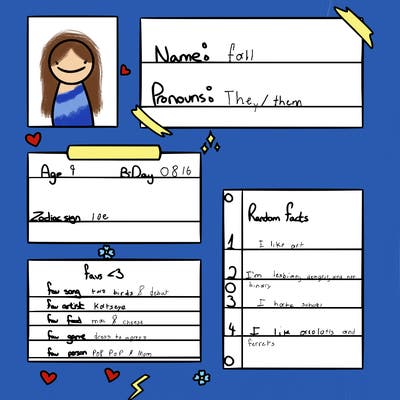 Name: fall
Pronouns: They/them
Age 9 BDay 0816
Zodiac sign leo
favs <3
fav song two birds & debut
fav artist Katseye
fav food mac & cheese
fav game dress to
fav person Pop Pop & Mom
Random facts
1 I like art
2 I'm lesbian, and non
binary
3 I hate school
4 I like axolotls and
ferrets